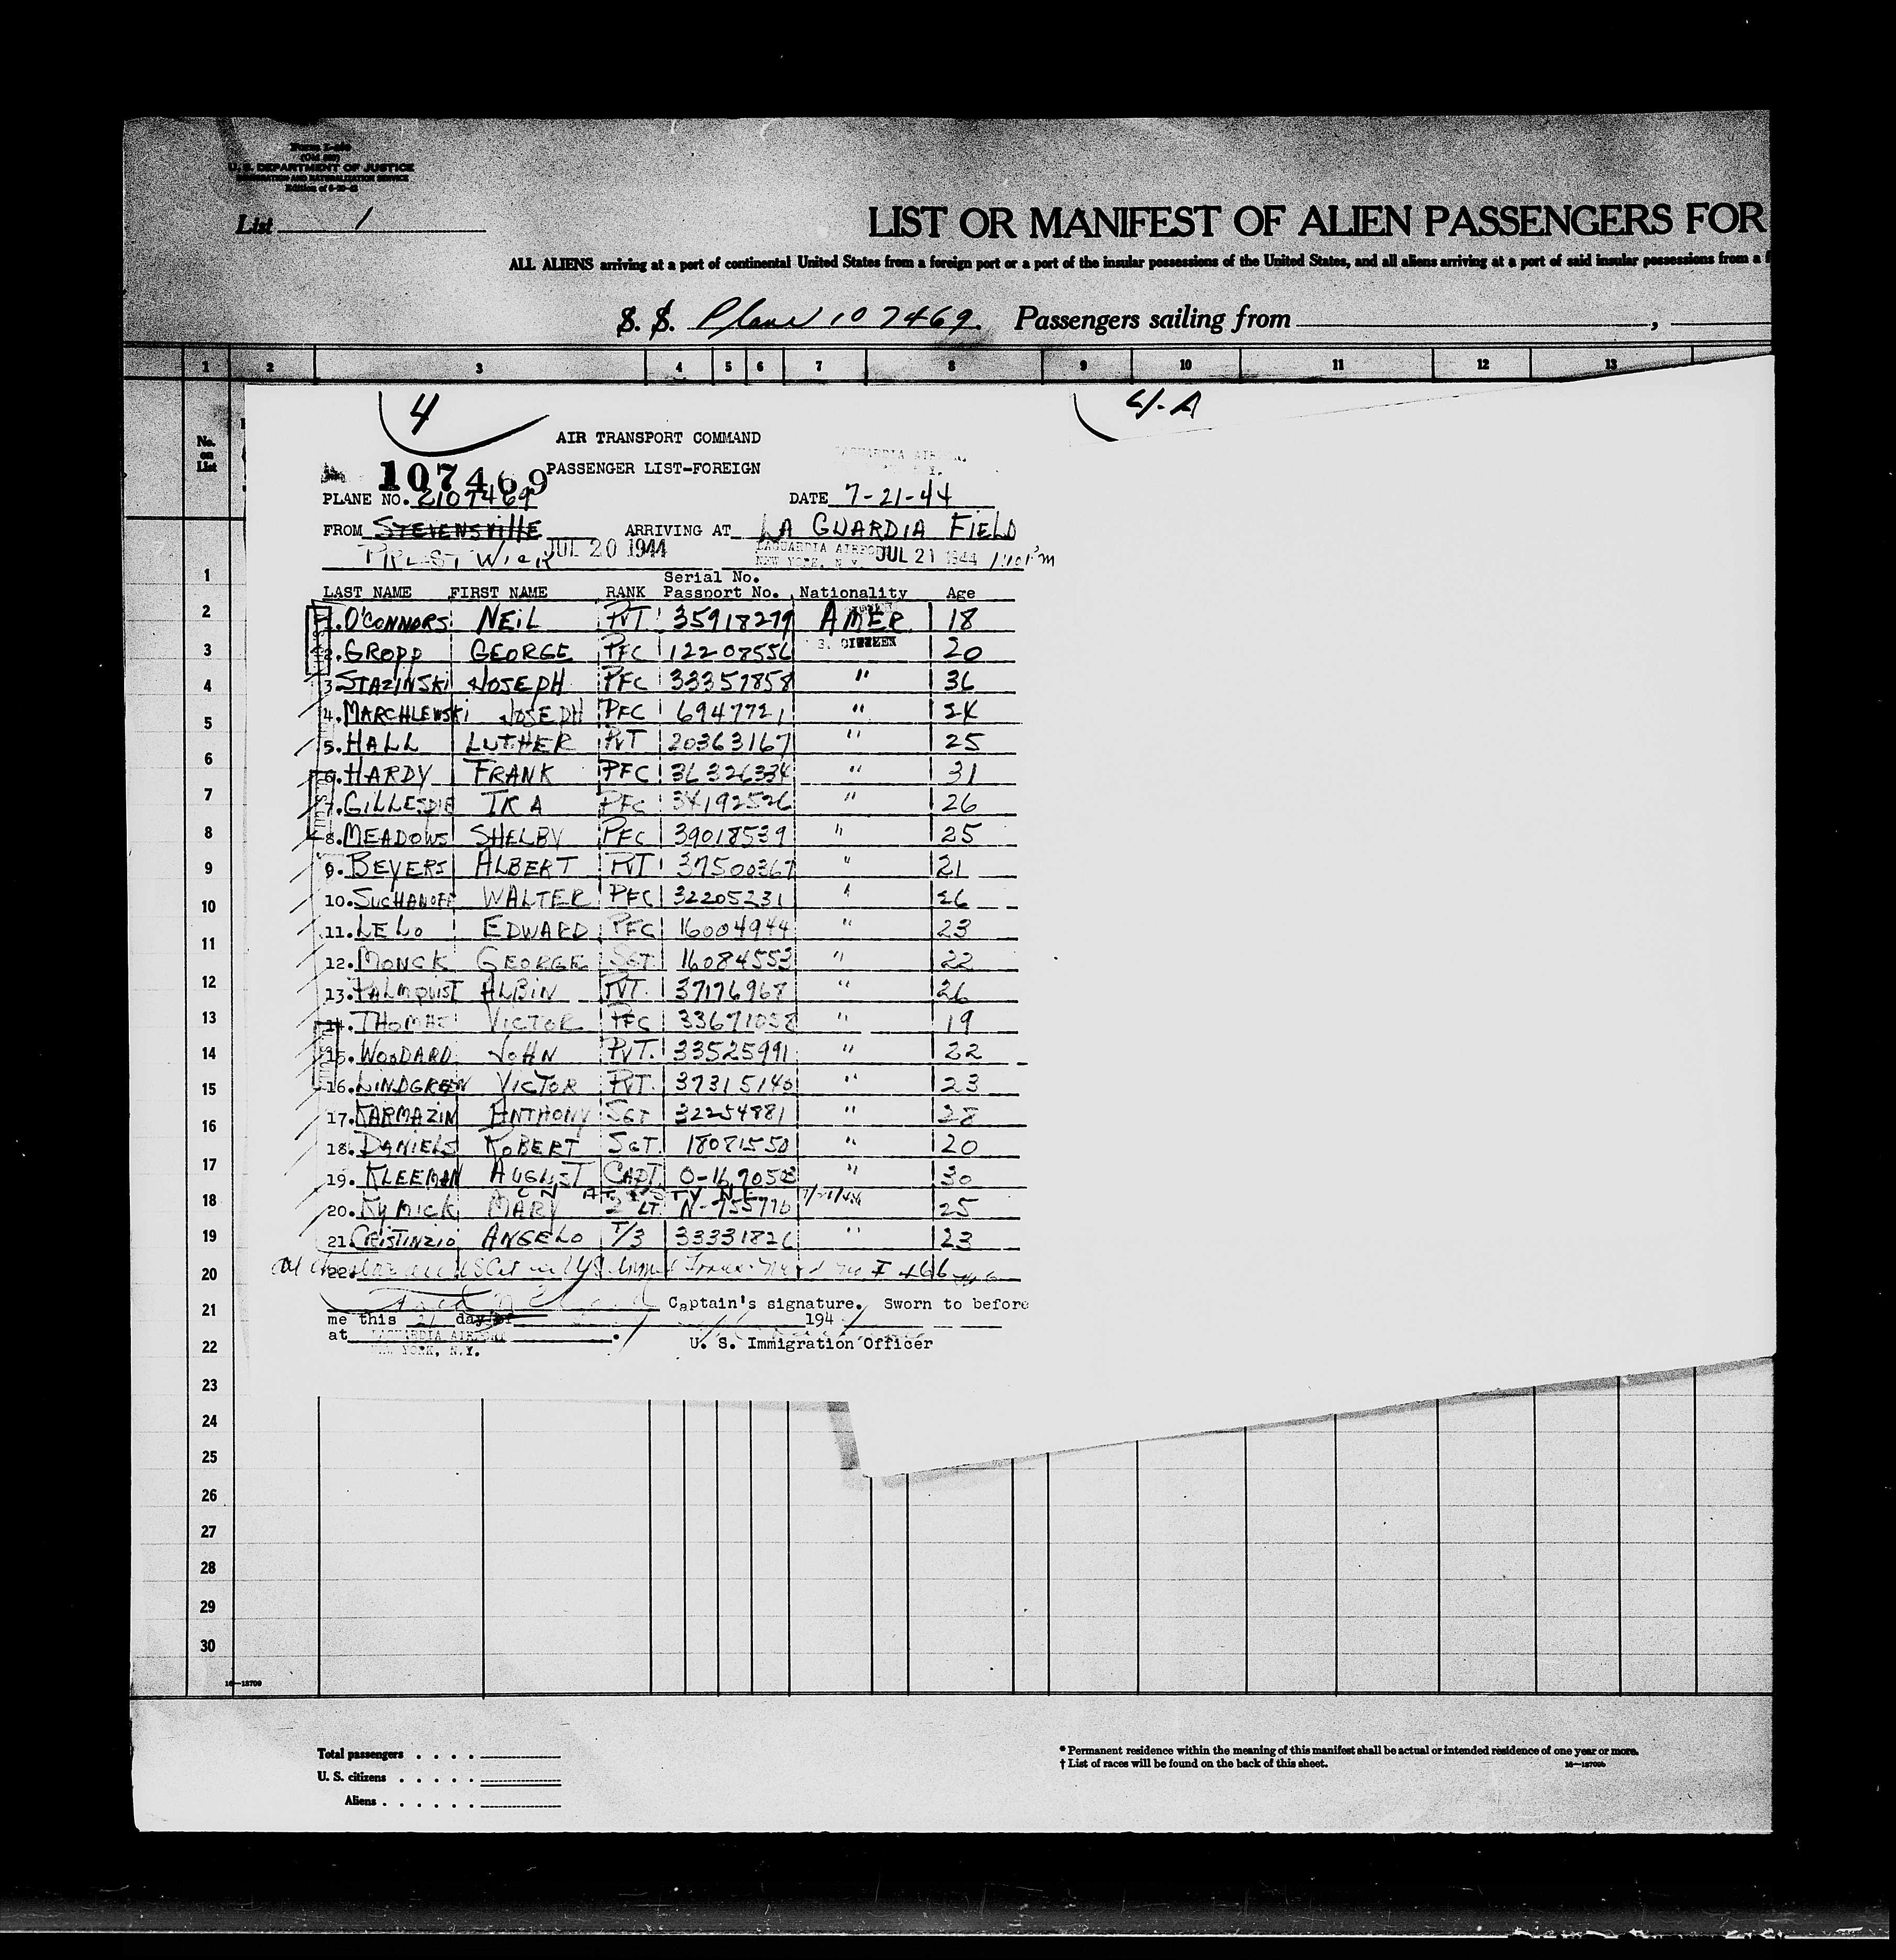 Form I-
(Old )
U. S. DEPARTMENT OF JUSTICE
IMMIGRATION AND NATURALIZATION SERVICE
Edition of
List 1
LIST OR MANIFEST OF ALIEN PASSENGERS FOR
ALL ALIENS arriving at a port of continental United States from a foreign port or a port of the insular possessions of the United States, and all aliens arriving at a port of said insular possessions from a
S. S. Plane 107469. Passengers sailing from ,
1 2 3 4 5 6 7 8 9 10 11 12 13
4 4-A
AIR TRANSPORT COMMAND
No. on List
107469 PASSENGER LIST-FOREIGN
PLANE NO. 2107469 DATE 7-21-44
FROM STEVENSVILLE ARRIVING AT LA GUARDIA FIELD
PREST WICK JUL 20 1944 LAGUARDIA AIRPORT NEW YORK, N.Y. JUL 21 1944
Serial No.
LAST NAME FIRST NAME RANK Passport No. Nationality Age
1. O'CONNORS NEIL PVT. 35918279 AMER 18
U.S. CITIZEN
2. GROPP GEORGE PFC 12208556 20
3. STAZINSKI JOSEPH PFC 33357858 " 36
4. MARCHLEWSKI JOSEPH PFC 6947721 " 24
5. HALL LUTHER PVT 20363167 " 25
6. HARDY FRANK PFC 36326334 " 31
7. GILLESPIE IRA PFC 34192526 " 26
8. MEADOWS SHELBY PFC 39018539 " 25
9. BEYERS ALBERT PVT 37500367 " 21
10. SUCHANOFF WALTER PFC 32205231 " 26
11. LELO EDWARD PFC 16004944 " 23
12. MONCK GEORGE SGT. 16084553 " 22
13. PALMQUIST ALBIN PVT. 37176967 " 26
14. THOMAS VICTOR PFC 33671038 " 19
15. WOODARD JOHN PVT. 33525991 " 22
16. LINDGREN VICTOR PVT. 37315140 " 23
17. KARMAZIN ANTHONY SGT 32254881 " 28
18. DANIELS ROBERT SGT. 18081550 " 20
19. KLEEMAN AUGUST CAPT. 0- " 30
20. KYMICK MARY 2 LT N-755770 25
21. CRISTINZIO ANGELO T/3 33331826 " 23
22.
Captain's signature. Sworn to before
me this 21 day of 194
at LAGUARDIA AIRPORT NEW YORK, N.Y. U. S. Immigration Officer
1
2
3
4
5
6
7
8
9
10
11
12
13
14
15
16
17
18
19
20
21
22
23
24
25
26
27
28
29
30
16—18709
Total passengers . . . .
U. S. citizens . . . . .
Aliens . . . . . .
* Permanent residence within the meaning of this manifest shall be actual or intended residence of one year or more.
† List of races will be found on the back of this sheet.